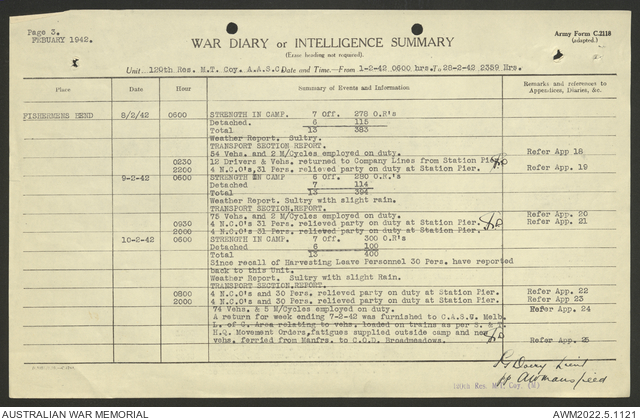 Page 3.
FEBUARY 1942.
Army Form C.2118
(adapted.)
WAR DIARY or INTELLIGENCE SUMMARY
(Erase heading not required).
Unit 120th Res. M.T. Coy. A.A.S.C. Date and Time—From 1-2-42 0600 hrs. To 28-2-42 2359 Hrs.
Place Date Hour Summary of Events and Information Remarks and references to Appendices, Diaries, &c.
FISHERMENS BEND 8/2/42 0600 STRENGTH IN CAMP. 7 Off. 278 O.R's
Detached. 6 115
Total 13 383
Weather Report. Sultry.
TRANSPORT SECTION REPORT.
54 Vehs. and 2 M/Cycles employed on duty. Refer App. 18
0230 12 Drivers & Vehs. returned to Company Lines from Station Pier.
2200 4 N.C.O's, 31 Pers. relieved party on duty at Station Pier. Refer App. 19
9-2-42 0600 STRENGTH IN CAMP 6 Off. 280 O.R's
Detached 7 114
Total 13 394
Weather Report. Sultry with slight rain.
TRANSPORT SECTION REPORT.
75 Vehs. and 2 M/Cycles employed on duty. Refer App. 20
0930 4 N.C.O's, 31 Pers. relieved party on duty at Station Pier. Refer App. 21
2000 4 N.C.O's, 31 Pers. relieved party on duty at Station Pier.
10-2-42 0600 STRENGTH IN CAMP. 7 Off. 300 O.R's
Detached 6 100
Total 13 400
Since recall of Harvesting Leave Personnel 30 Pers. have reported
back to this Unit.
Weather Report. Sultry with slight Rain.
TRANSPORT SECTION REPORT.
0800 4 N.C.O's and 30 Pers. relieved party on duty at Station Pier. Refer App. 22
2000 4 N.C.O's and 30 Pers. relieved party on duty at Station Pier. Refer App 23
74 Vehs. & 5 M/Cycles employed on duty. Refer App. 24
A return for week ending 7-2-42 was furnished to C.A.S.U. Melb.
L. of C. Area relating to vehs. loaded on trains as per S. & T.
H.Q. Movement Orders, fatigues supplied outside camp and new
vehs. ferried from Manfrs. to C.O.D. Broadmeadows. Refer App. 25
Lieut
120th Res. M.T. Coy. (M)
AUSTRALIAN WAR MEMORIAL
AWM2022.5.1121